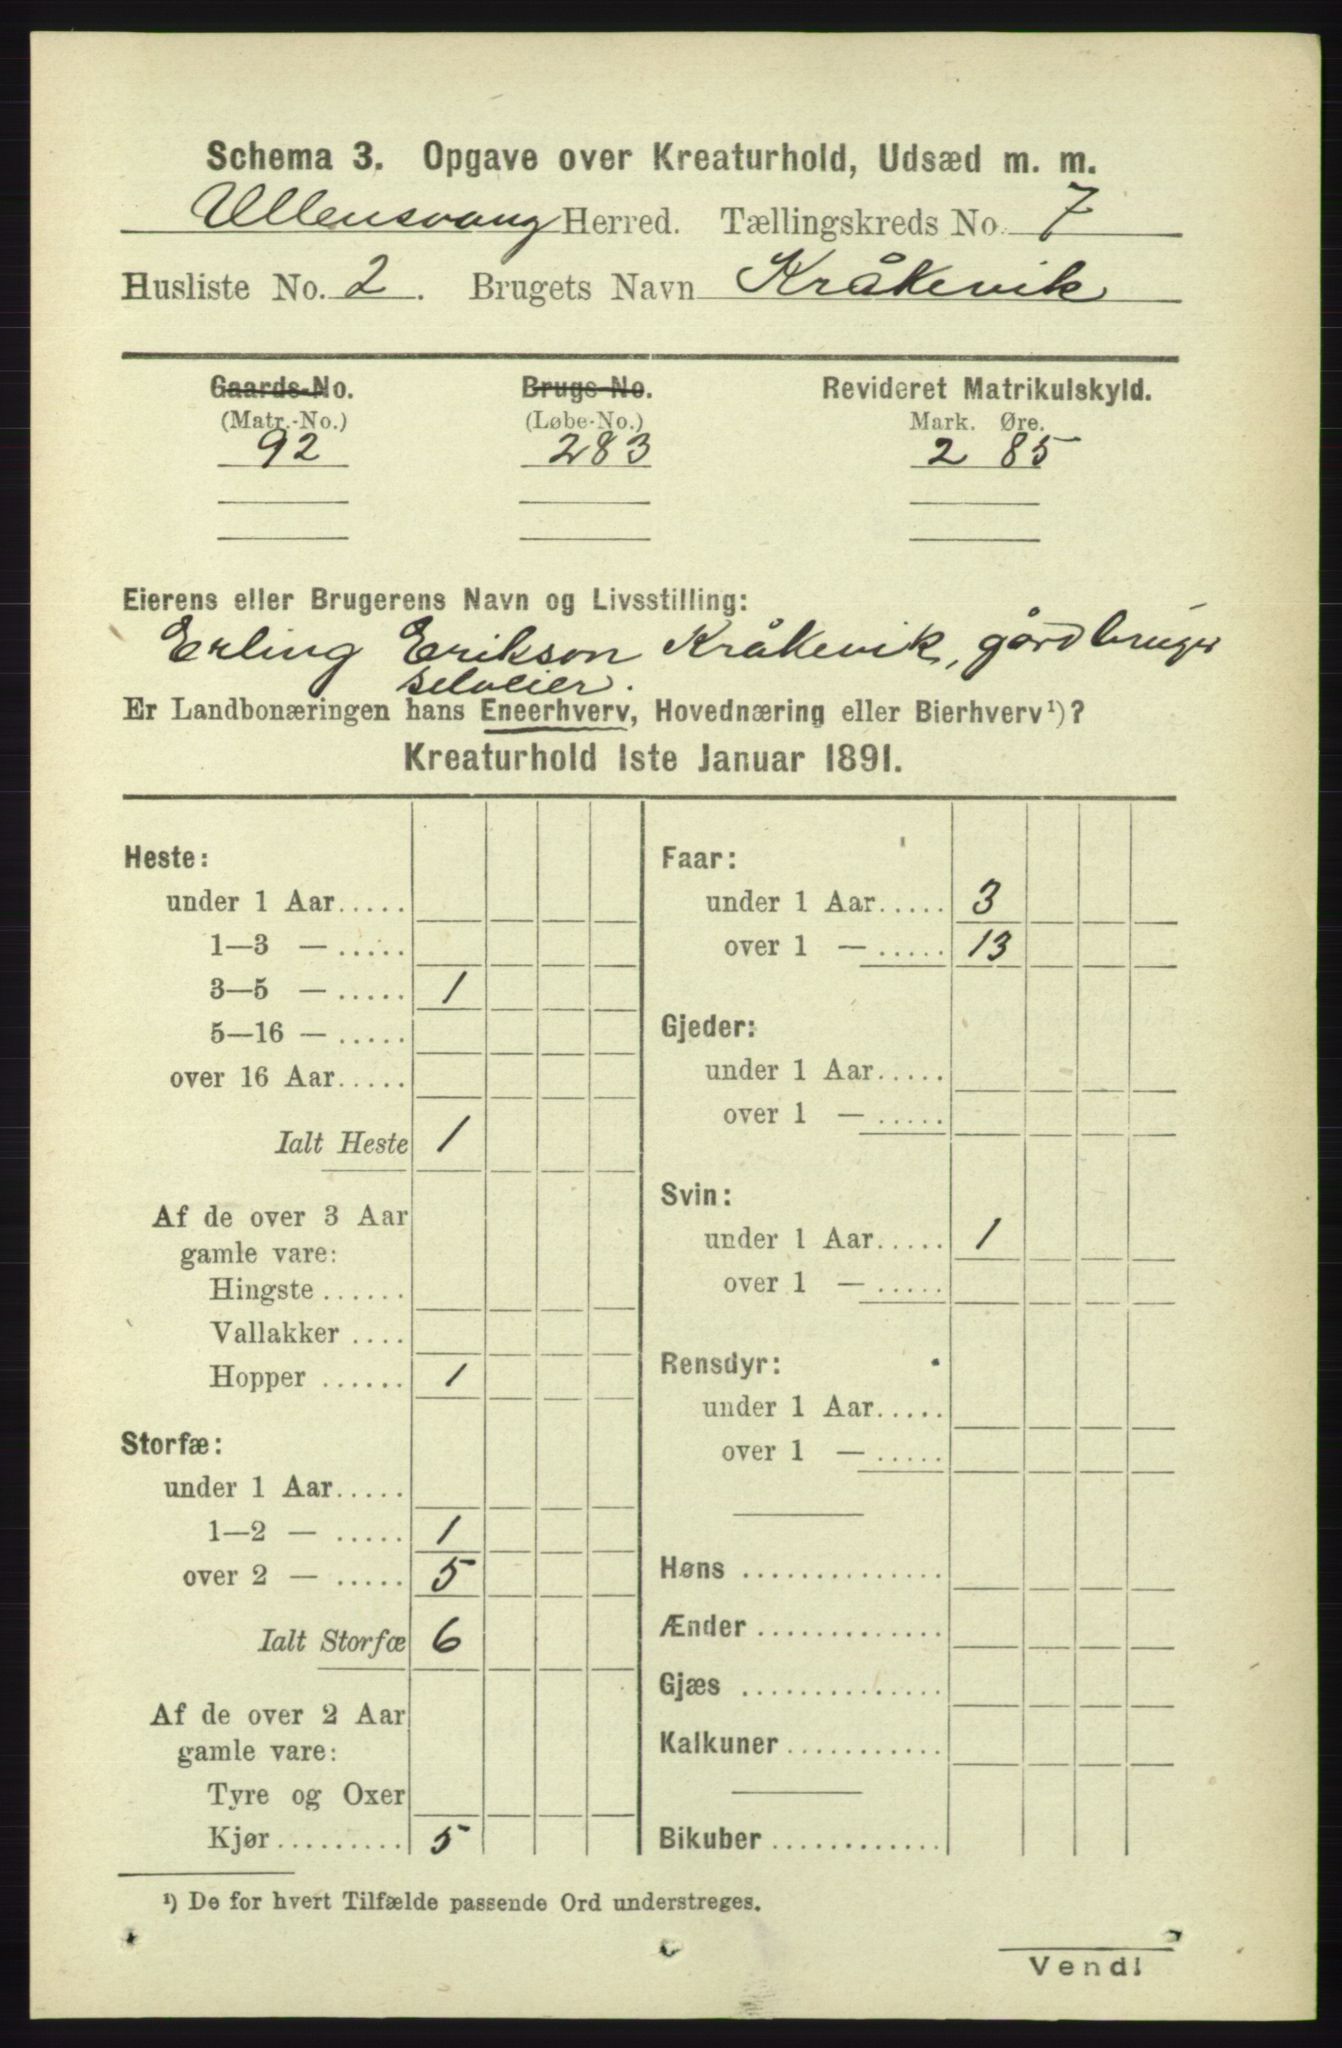 Schema 3. Opgave over Kreaturhold, Udsæd m. m.
Ullensvang Herred. Tællingskreds No. 7
Husliste No. 2. Brugets Navn Kråkevik
Gaards-No. Brugs-No. Revideret Matrikulskyld.
(Matr.-No.) (Løbe-No.) Mark. Øre.
92 283 2 85
Eierens eller Brugerens Navn og Livsstilling:
Erling Erikson Kråkevik, gårdbruger
selveier.
Er Landbonæringen hans Eneerhverv, Hovednæring eller Bierhverv¹)?
Kreaturhold 1ste Januar 1891.
Heste:
under 1 Aar.....
1—3 — .....
3—5 — ..... 1
5—16 — .....
over 16 Aar.....
Ialt Heste 1
Af de over 3 Aar
gamle vare:
Hingste ......
Vallakker ....
Hopper ...... 1
Storfæ:
under 1 Aar.....
1—2 — ..... 1
over 2 — ..... 5
Ialt Storfæ 6
Af de over 2 Aar
gamle vare:
Tyre og Oxer
Kjør......... 5
Faar:
under 1 Aar..... 3
over 1 — ..... 13
Gjeder:
under 1 Aar.....
over 1 — .....
Svin:
under 1 Aar..... 1
over 1 — .....
Rensdyr:
under 1 Aar.....
over 1 — .....
Høns ..............
Ænder .............
Gjæs ..............
Kalkuner...........
Bikuber............
¹) De for hvert Tilfælde passende Ord understreges.
Vend!